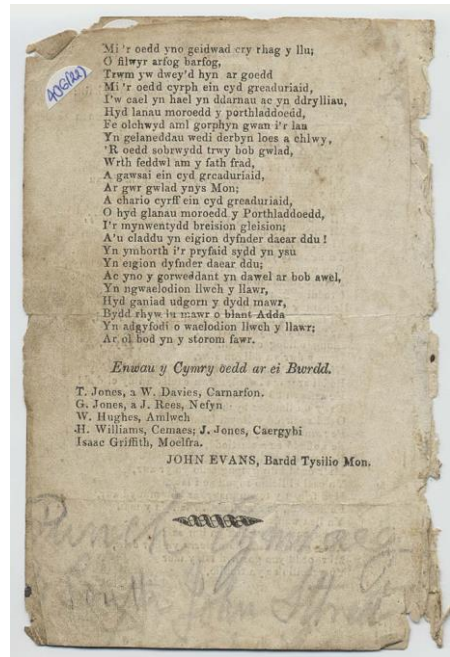 406(22)
Mi 'r oedd yno geidwad cry rhag y llu;
O filwyr arfog barfog,
Trwm yw dwey'd hyn ar goedd
Mi 'r oedd cyrph ein cyd greaduriaid,
I'w cael yn hael yn ddarnau ac yn ddrylliau,
Hyd lanau moroedd y porthladdoedd,
Fe olchwyd aml gorphyn gwan i'r lan
Yn gelaneddau wedi derbyn loes a chlwy,
'R oedd sobrwydd trwy bob gwlad,
Wrth feddwl am y fath frad,
A gawsai ein cyd greaduriaid,
Ar gwr gwlad ynys Mon;
A chario cyrff ein cyd greaduriaid,
O hyd glanau moroedd y Porthladdoedd,
I'r mynwentydd breision gleision;
A'u claddu yn eigion dyfnder daear ddu!
Yn ymborth i'r pryfaid sydd yn ysu
Yn eigion dyfnder daear ddu;
Ac yno y gorweddant yn dawel ar bob awel,
Yn ngwaelodion llwch y llawr,
Hyd ganiad udgorn y dydd mawr,
Bydd rhyw iu mawr o blant Adda
Yn adgyfodi o waelodion llwch y llawr;
Ar ol bod yn y storom fawr.
Enwau y Cymry oedd ar ei Bwrdd.
T. Jones, a W. Davies, Carnarfon.
G. Jones, a J. Rees, Nefyn
W. Hughes, Amlwch
H. Williams, Cemaes; J. Jones, Caergybi
Isaac Griffith, Moelfra.
JOHN EVANS, Bardd Tysilio Mon.
Punch Cymraeg
South John Street